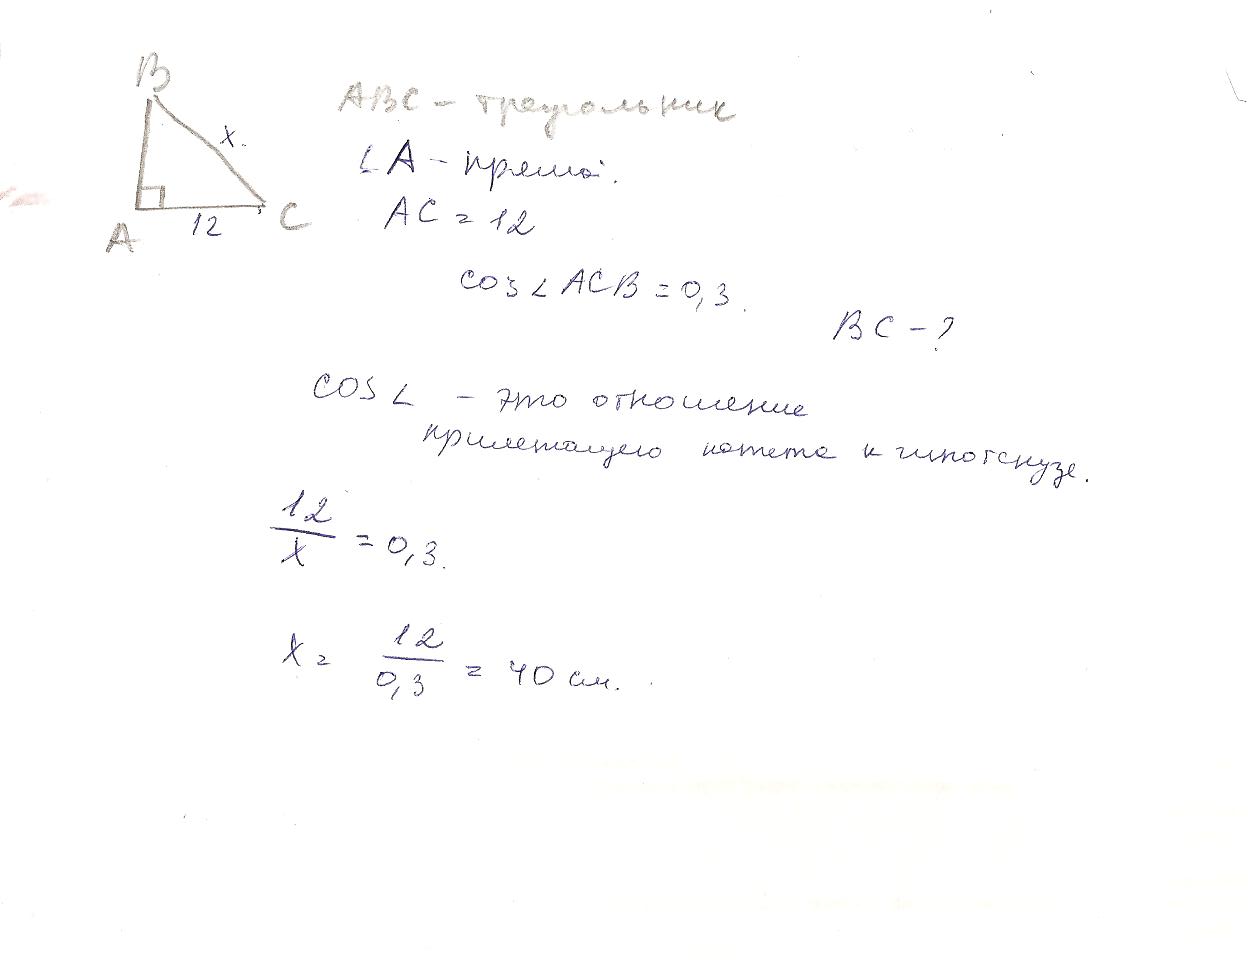 B
x.
A
12
C
ABC - треугольник
∠A - прямой.
AC = 12
cos∠ACB = 0,3.
BC - ?
cos∠ - это отношение
прилежащего катета к гипотенузе.
12/x = 0,3.
x = 12/0,3 = 40 см.